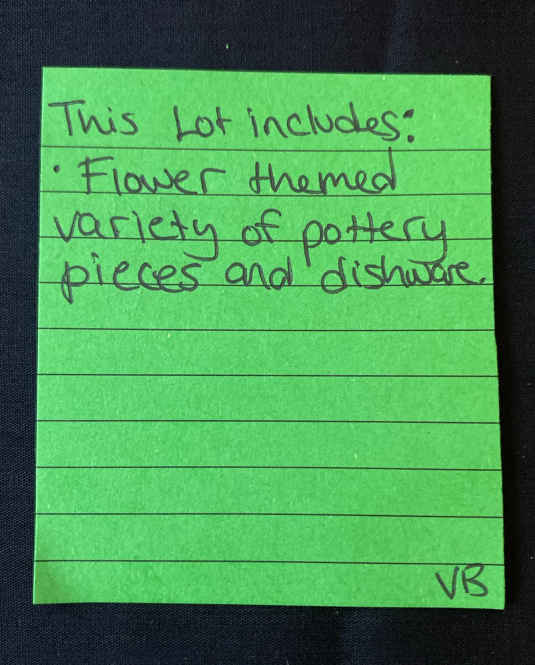 This Lot includes:
· Flower themed
variety of pottery
pieces and dishware.
VB